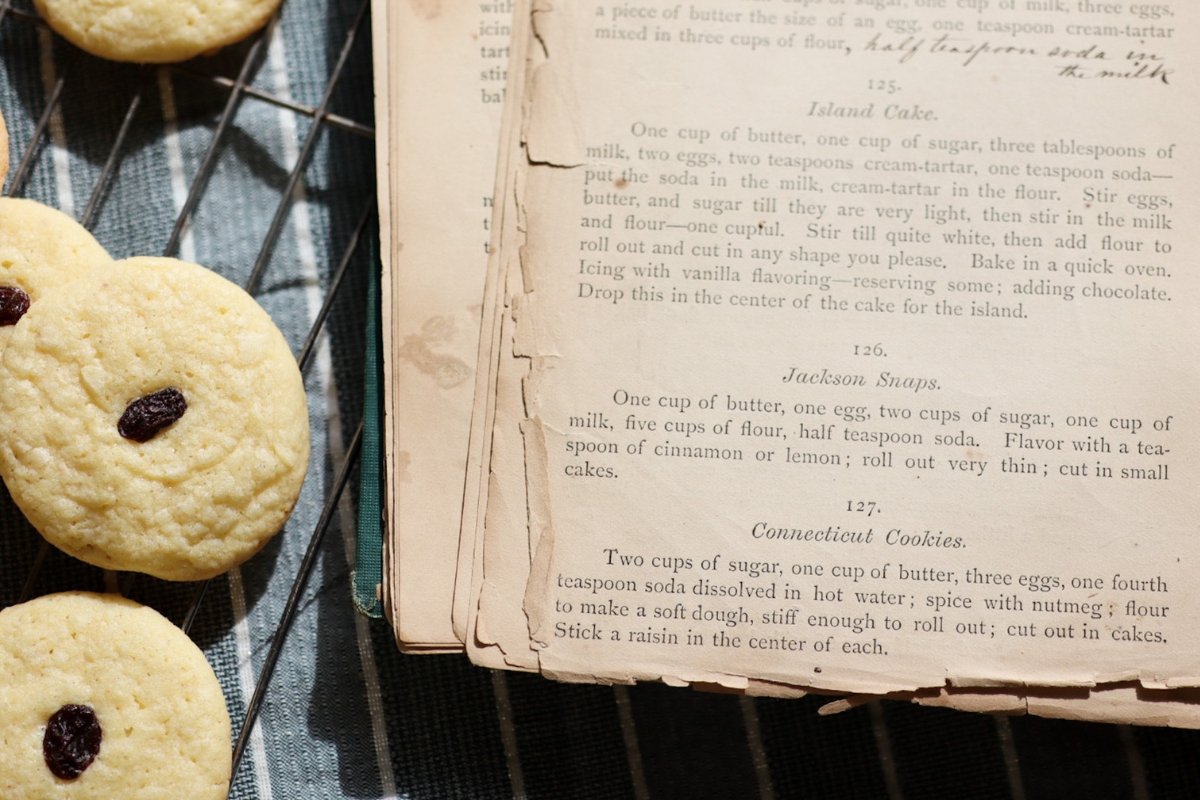 with
icin
tart
stir
bal
n
t
t
cups of sugar, one cup of milk, three eggs,
a piece of butter the size of an egg, one teaspoon cream-tartar
mixed in three cups of flour, half teaspoon soda in
the milk
125.
Island Cake.
One cup of butter, one cup of sugar, three tablespoons of
milk, two eggs, two teaspoons cream-tartar, one teaspoon soda—
put the soda in the milk, cream-tartar in the flour. Stir eggs,
butter, and sugar till they are very light, then stir in the milk
and flour—one cupful. Stir till quite white, then add flour to
roll out and cut in any shape you please. Bake in a quick oven.
Icing with vanilla flavoring—reserving some; adding chocolate.
Drop this in the center of the cake for the island.
126.
Jackson Snaps.
One cup of butter, one egg, two cups of sugar, one cup of
milk, five cups of flour, half teaspoon soda. Flavor with a tea-
spoon of cinnamon or lemon; roll out very thin; cut in small
cakes.
127.
Connecticut Cookies.
Two cups of sugar, one cup of butter, three eggs, one fourth
teaspoon soda dissolved in hot water; spice with nutmeg; flour
to make a soft dough, stiff enough to roll out; cut out in cakes.
Stick a raisin in the center of each.